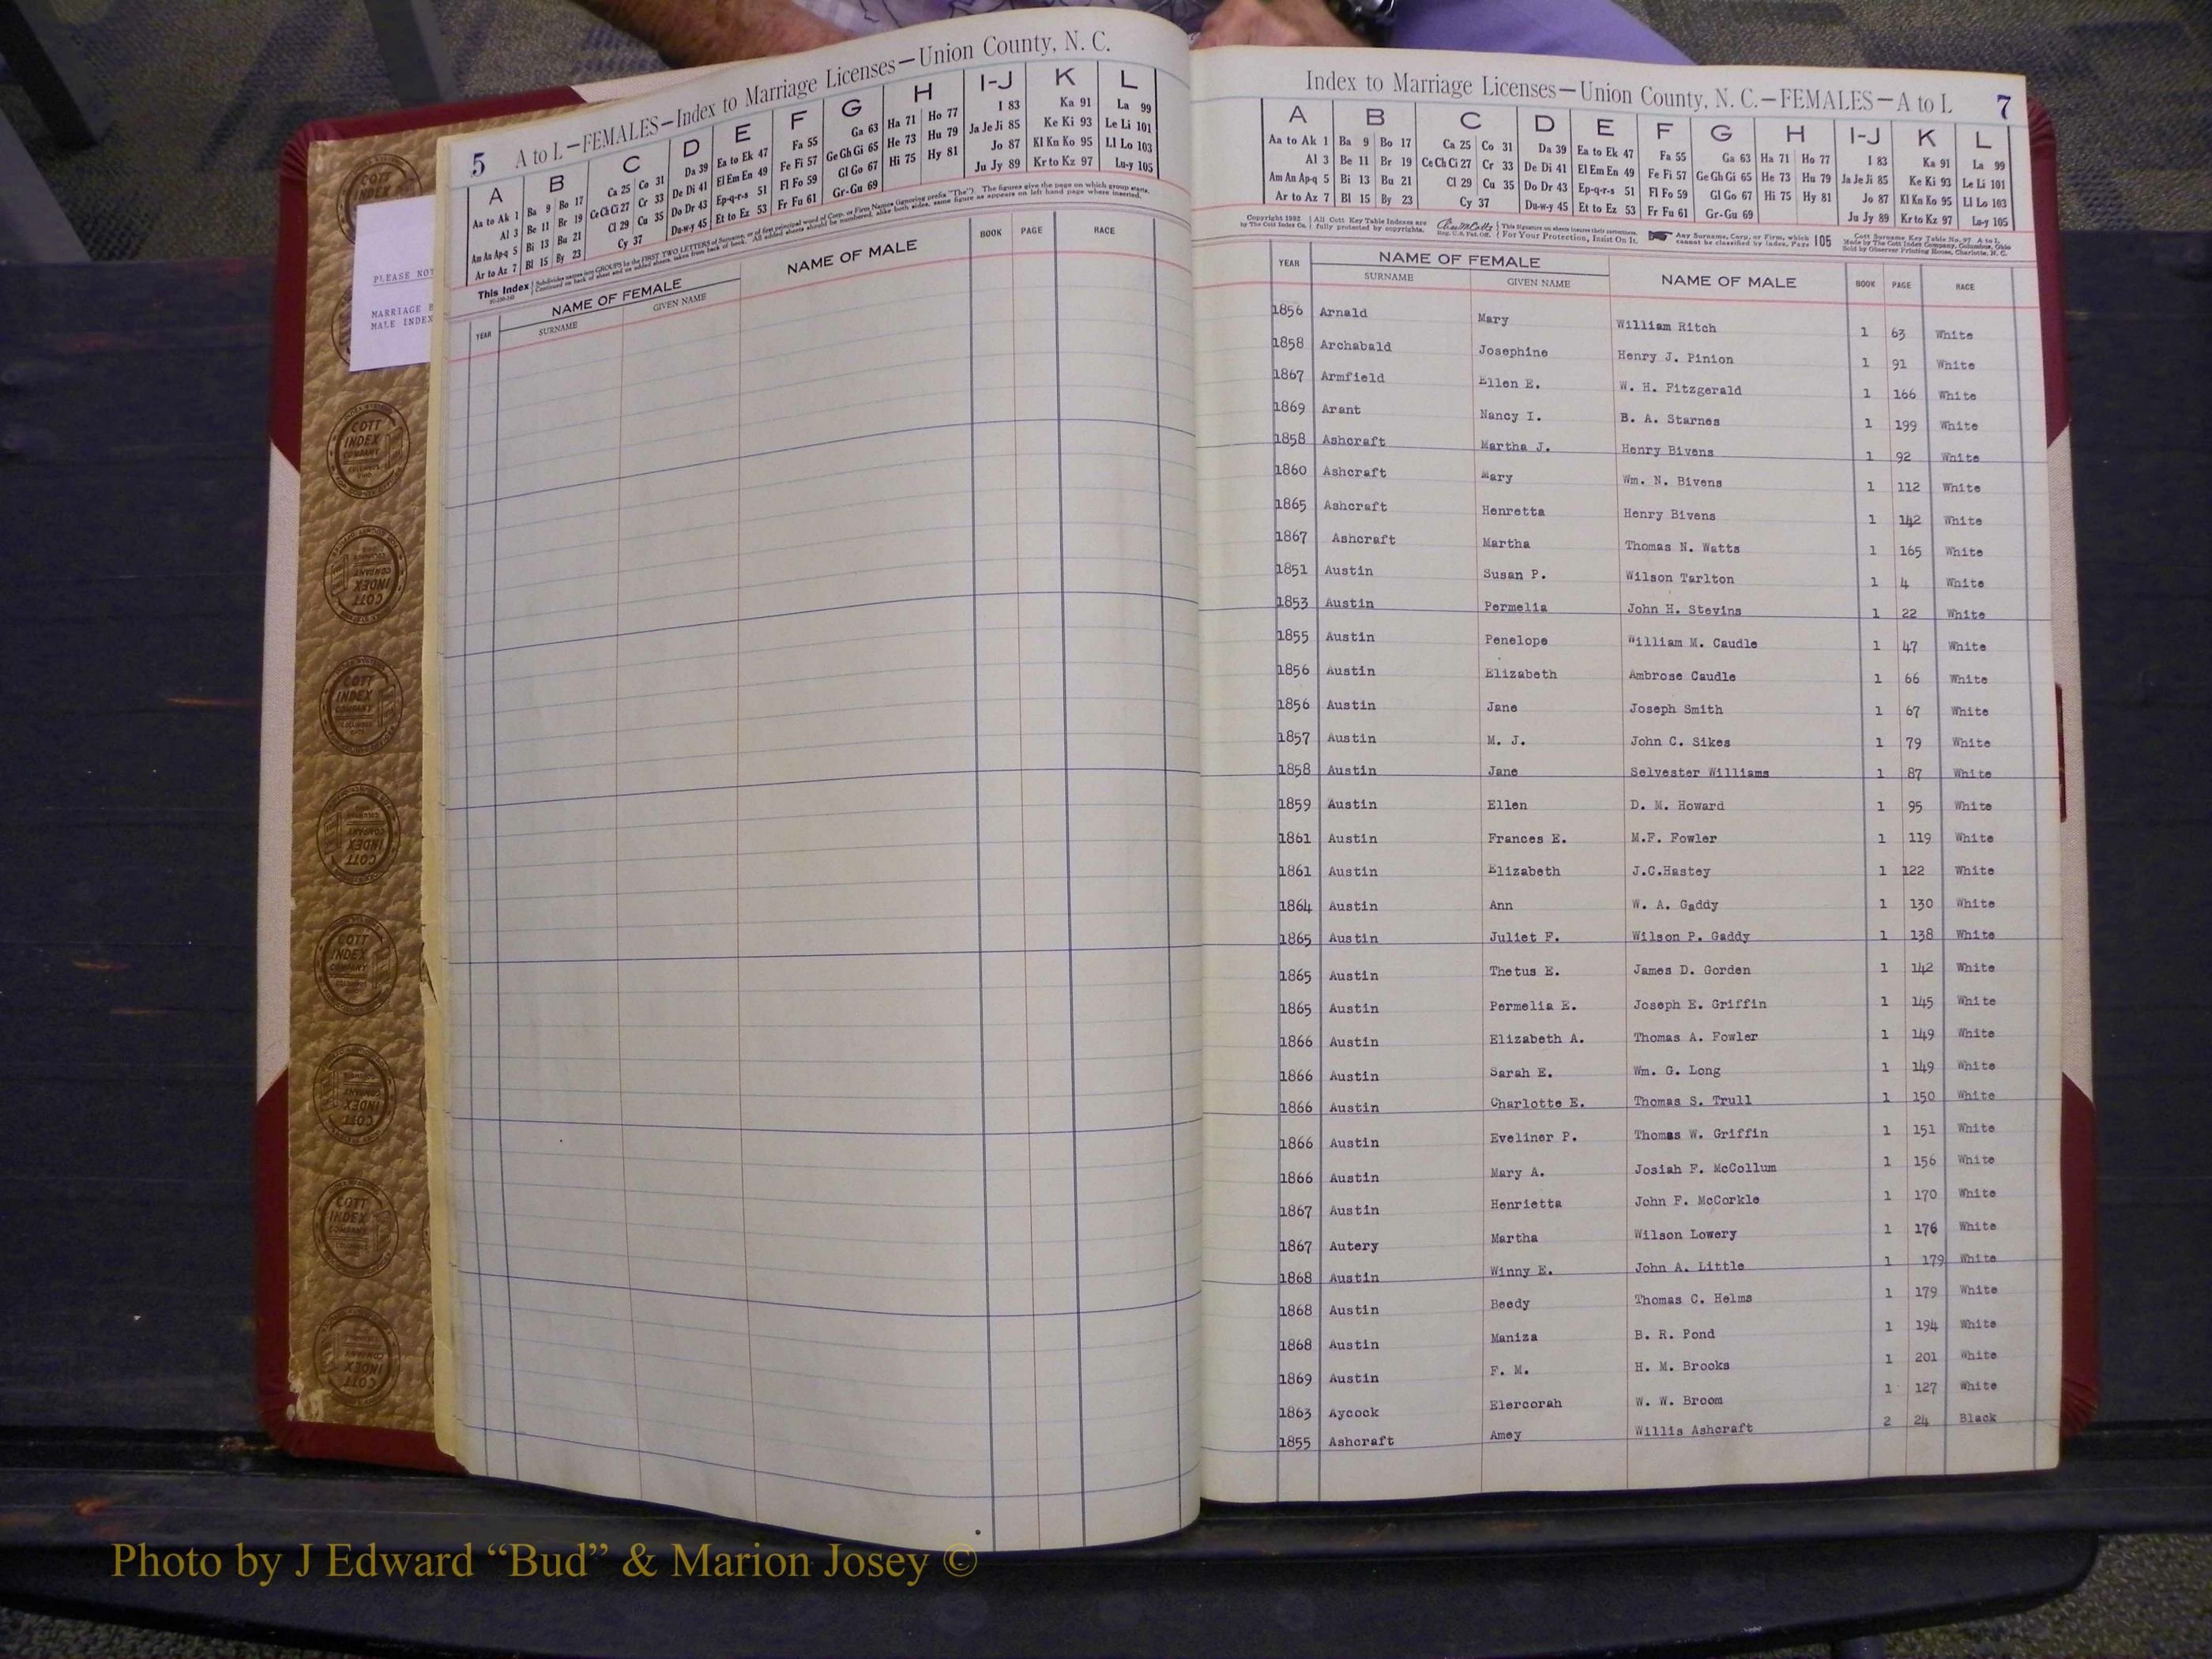 5 A to L—FEMALES—Index to Marriage Licenses—Union County, N. C.
A B C D E F G H I-J K L
Aa to Ak 1 Ba 9 Bo 17 Ca 25 Co 31 Da 39 Ea to Ek 47 Fa 55 Ga 63 Ha 71 Ho 77 I 83 Ka 91 La 99
Al 3 Be 11 Br 19 Ce Ch Ci 27 Cr 33 De Di 41 El Em En 49 Fe Fi 57 Ge Gh Gi 65 He 73 Hu 79 Ja Je Ji 85 Ke Ki 93 Le Li 101
Am An Ap-q 5 Bi 13 Bu 21 Cl 29 Cu 35 Do Dr 43 Ep-q-r-s 51 Fl Fo 59 Gl Go 67 Hi 75 Hy 81 Jo 87 Kl Kn Ko 95 Ll Lo 103
Ar to Az 7 Bl 15 By 23 Cy 37 Du-w-y 45 Et to Ez 53 Fr Fu 61 Gr-Gu 69 Ju Jy 89 Kr to Kz 97 Lu-y 105
This Index
YEAR NAME OF FEMALE NAME OF MALE BOOK PAGE RACE
SURNAME GIVEN NAME
PLEASE NOT
MARRIAGE B
MALE INDEX
COTT INDEX COMPANY
Index to Marriage Licenses—Union County, N. C.—FEMALES—A to L 7
A B C D E F G H I-J K L
Aa to Ak 1 Ba 9 Bo 17 Ca 25 Co 31 Da 39 Ea to Ek 47 Fa 55 Ga 63 Ha 71 Ho 77 I 83 Ka 91 La 99
Al 3 Be 11 Br 19 Ce Ch Ci 27 Cr 33 De Di 41 El Em En 49 Fe Fi 57 Ge Gh Gi 65 He 73 Hu 79 Ja Je Ji 85 Ke Ki 93 Le Li 101
Am An Ap-q 5 Bi 13 Bu 21 Cl 29 Cu 35 Do Dr 43 Ep-q-r-s 51 Fl Fo 59 Gl Go 67 Hi 75 Hy 81 Jo 87 Kl Kn Ko 95 Ll Lo 103
Ar to Az 7 Bl 15 By 23 Cy 37 Du-w-y 45 Et to Ez 53 Fr Fu 61 Gr-Gu 69 Ju Jy 89 Kr to Kz 97 Lu-y 105
All Cott Key Table Indexes are fully protected by copyrights. For Your Protection, Insist On It. Any Surname, Corp. or Firm, which cannot be classified by index, Page 105
YEAR NAME OF FEMALE NAME OF MALE BOOK PAGE RACE
SURNAME GIVEN NAME
1856 Arnald Mary William Ritch 1 63 White
1858 Archabald Josephine Henry J. Pinion 1 91 White
1867 Armfield Ellen E. W. H. Fitzgerald 1 166 White
1869 Arant Nancy I. B. A. Starnes 1 199 White
1858 Ashcraft Martha J. Henry Bivens 1 92 White
1860 Ashcraft Mary Wm. N. Bivens 1 112 White
1865 Ashcraft Henretta Henry Bivens 1 142 White
1867 Ashcraft Martha Thomas N. Watts 1 165 White
1851 Austin Susan P. Wilson Tarlton 1 4 White
1853 Austin Permelia John H. Stevins 1 22 White
1855 Austin Penelope William M. Caudle 1 47 White
1856 Austin Elizabeth Ambrose Caudle 1 66 White
1856 Austin Jane Joseph Smith 1 67 White
1857 Austin M. J. John C. Sikes 1 79 White
1858 Austin Jane Selvester Williams 1 87 White
1859 Austin Ellen D. M. Howard 1 95 White
1861 Austin Frances E. M.F. Fowler 1 119 White
1861 Austin Elizabeth J.C.Hastey 1 122 White
1864 Austin Ann W. A. Gaddy 1 130 White
1865 Austin Juliet F. Wilson P. Gaddy 1 138 White
1865 Austin Thetus E. James D. Gorden 1 142 White
1865 Austin Permelia E. Joseph E. Griffin 1 145 White
1866 Austin Elizabeth A. Thomas A. Fowler 1 149 White
1866 Austin Sarah E. Wm. G. Long 1 149 White
1866 Austin Charlotte E. Thomas S. Trull 1 150 White
1866 Austin Eveliner P. Thomas W. Griffin 1 151 White
1866 Austin Mary A. Josiah F. McCollum 1 156 White
1867 Austin Henrietta John F. McCorkle 1 170 White
1867 Autery Martha Wilson Lowery 1 176 White
1868 Austin Winny E. John A. Little 1 179 White
1868 Austin Beedy Thomas C. Helms 1 179 White
1868 Austin Maniza B. R. Pond 1 194 White
1869 Austin F. M. H. M. Brooks 1 201 White
1863 Aycock Elercorah W. W. Broom 1 127 White
1855 Ashcraft Amey Willis Ashcraft 2 24 Black
Photo by J Edward “Bud” & Marion Josey ©